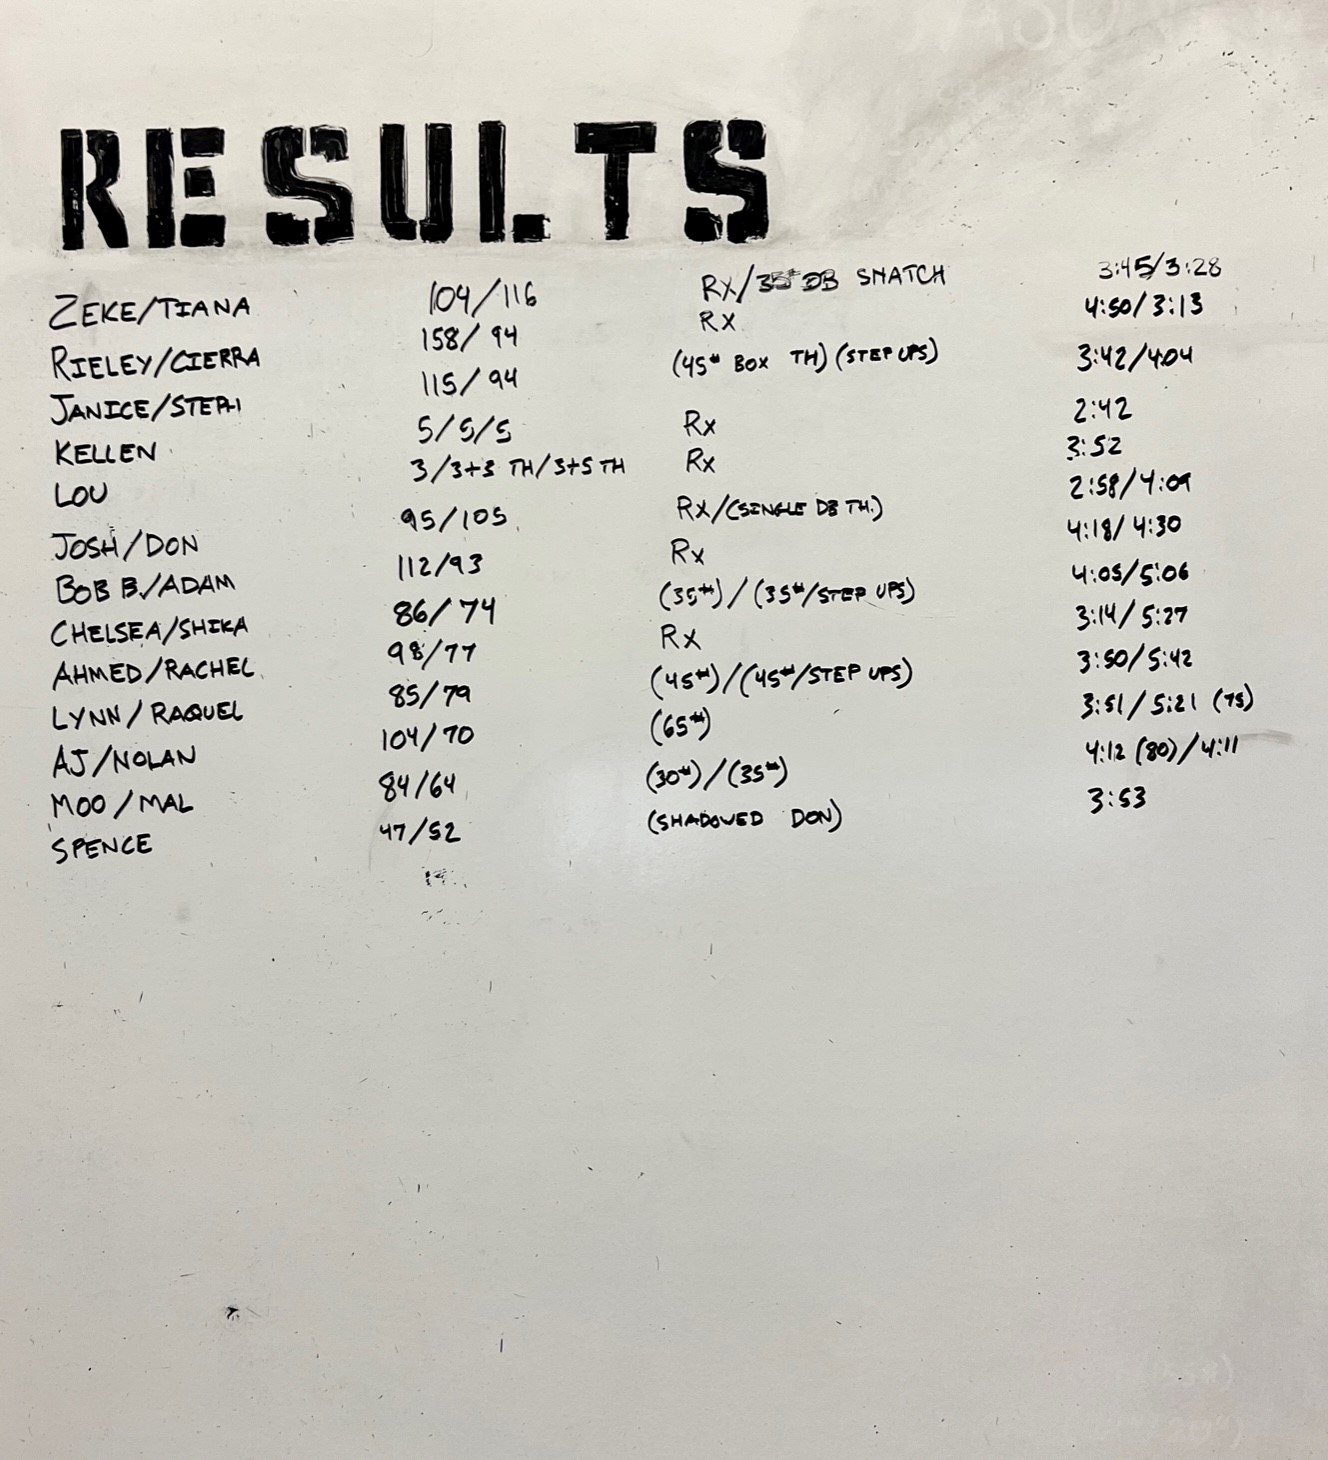 RESULTS
ZEKE/TIANA 104/116 RX/35# DB SNATCH 3:45/3:28
RIELEY/CIERRA 158/94 RX 4:50/3:13
JANICE/STEPH 115/94 (45# BOX TH) (STEP UPS) 3:42/4:04
KELLEN 5/5/5 RX 2:42
LOU 3/3+3 TH/3+5 TH RX 3:52
JOSH/DON 95/105 RX/(SINGLE DB TH.) 2:58/4:09
BOB B./ADAM 112/93 RX 4:18/4:30
CHELSEA/SHIKA 86/74 (35#)/(35#/STEP UPS) 4:05/5:06
AHMED/RACHEL 98/77 RX 3:14/5:27
LYNN/RAQUEL 85/79 (45#)/(45#/STEP UPS) 3:50/5:42
AJ/NOLAN 104/70 (65#) 3:51/5:21 (75)
MOO/MAL 84/64 (30#)/(35#) 4:12 (80)/4:11
SPENCE 47/52 (SHADOWED DON) 3:53